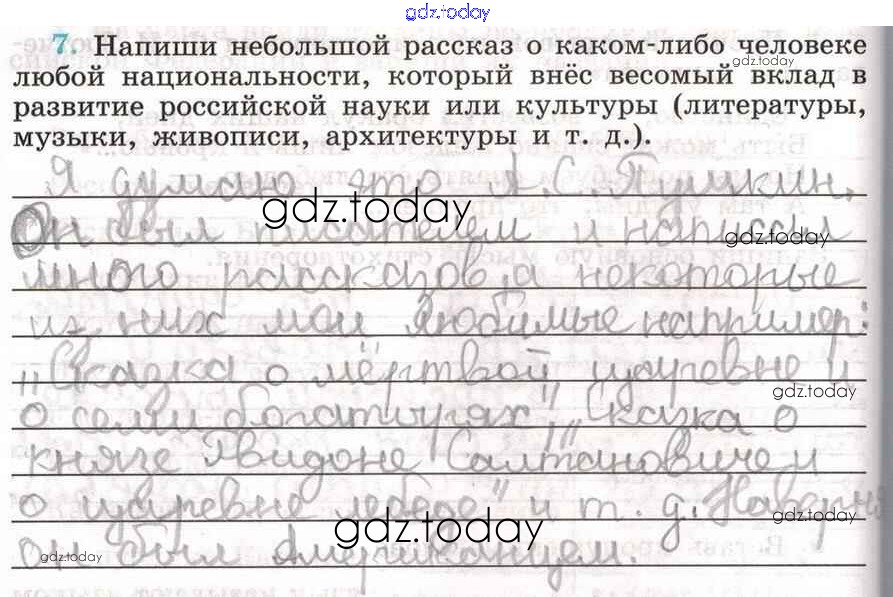 gdz.today
7. Напиши небольшой рассказ о каком-либо человеке
gdz.today
любой национальности, который внёс весомый вклад в
развитие российской науки или культуры (литературы,
музыки, живописи, архитектуры и т. д.).
Я думаю что А.С. Пушкин.
gdz.today
Он был писателем и написал
gdz.today
много рассказов а некоторые
из них мои любимые например:
„Сказка о мёртвой царевне и
gdz.today
о семи богатырях" „Сказка о
князе Гвидоне Салтановиче и
о царевне лебеде" и т. д. Наверно
gdz.today
gdz.today
он был Американцем.
gdz.today